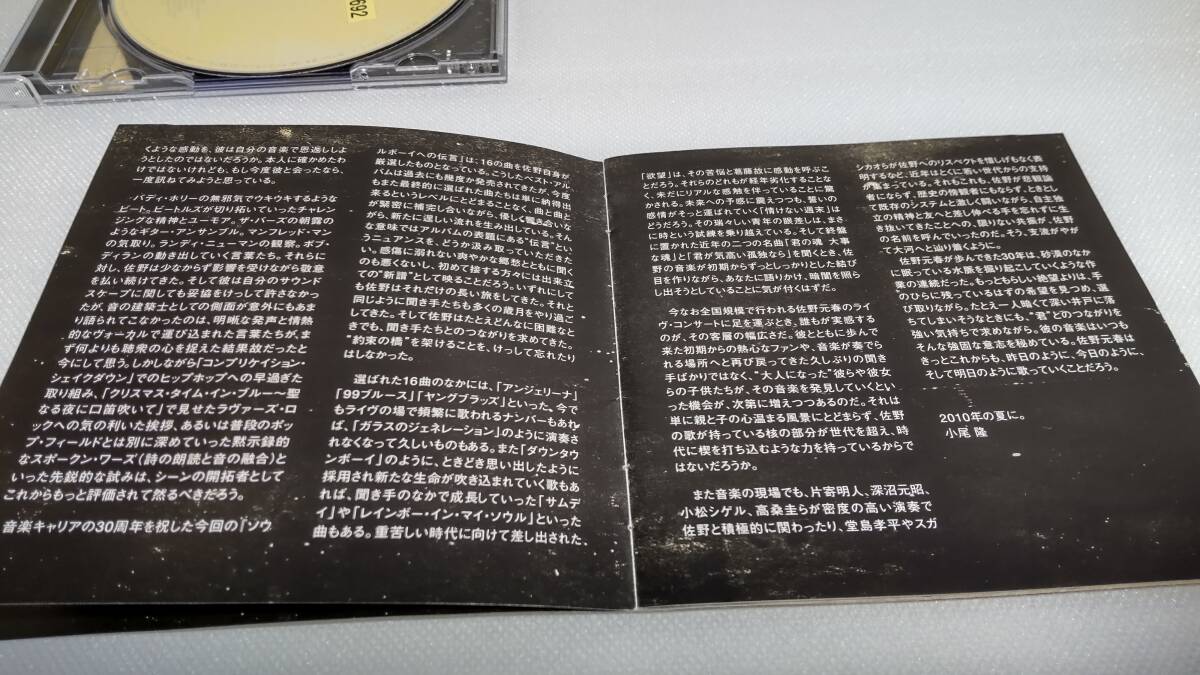 692
くような感動を、彼は自分の音楽で恩返ししよ
うとしたのではないだろうか。本人に確かめたわ
けではないけれども、もし今度彼と会ったなら、
一度訊ねてみようと思っている。
バディ・ホリーの無邪気でウキウキするような
ビート。ビートルズが切り拓いていったチャレン
ジングな精神とユーモア。ザ・バーズの朝露の
ようなギター・アンサンブル。マンフレッド・マン
の気取り。ランディ・ニューマンの観察。ボブ・
ディランの動き出していく言葉たち。それらに
対し、佐野は少なからず影響を受けながら敬意
を払い続けてきた。そして彼は自分のサウンド
スケープに関しても妥協をけっして許さなかっ
たが、音の建築士としての側面が意外にもあま
り語られてこなかったのは、明晰な発声と情熱
的なヴォーカルで運び込まれた言葉たちが、ま
ず何よりも聴衆の心を捉えた結果故だったと
今にして思う。しかしながら「コンプリケイション・
シェイクダウン」でのヒップホップへの早過ぎた
取り組み、「クリスマス・タイム・イン・ブルー〜聖
なる夜に口笛吹いて」で見せたラヴァーズ・ロ
ックへの気の利いた挨拶、あるいは普段のポッ
プ・フィールドとは別に深めていった黙示録的
なスポークン・ワーズ（詩の朗読と音の融合）と
いった先鋭的な試みは、シーンの開拓者として
これからもっと評価されて然るべきだろう。
音楽キャリアの30周年を祝した今回の『ソウ
ルボーイへの伝言』は、16の曲を佐野自身が
厳選したものとなっている。こうしたベスト・アル
バムは過去にも幾度か発売されてきたが、今度
もまた最終的に選ばれた曲たちは単に納得出
来るというレベルにとどまることなく、曲と曲と
が緊密に補完し合いながら、優しく響き合いな
がら、新たに逞しい流れを生み出している。そん
な意味ではアルバムの表題にある“伝言”とい
うニュアンスを、どうか汲み取っていただきた
い。感傷に溺れない爽やかな郷愁とともに聞く
のも悪くないし、初めて接する方々には出来立
ての“新譜”として映ることだろう。いずれにして
も佐野はそれだけの長い旅をしてきた。それと
同じように聞き手たちも多くの歳月をやり過ご
してきた。そして佐野はたとえどんなに困難なと
きでも、聞き手たちとのつながりを求めてきた。
“約束の橋”を架けることを、けっして忘れたり
はしなかった。
選ばれた16曲のなかには、「アンジェリーナ」
「99ブルース」「ヤングブラッズ」といった、今で
もライヴの場で頻繁に歌われるナンバーもあれ
ば、「ガラスのジェネレーション」のように演奏さ
れなくなって久しいものもある。また「ダウンタウ
ンボーイ」のように、ときどき思い出したように
採用され新たな生命が吹き込まれていく歌もあ
れば、聞き手のなかで成長していった「サムデ
イ」や「レインボー・イン・マイ・ソウル」といった
曲もある。重苦しい時代に向けて差し出された、
「欲望」は、その苦悩と葛藤故に感動を呼ぶこ
とだろう。それらのどれもが経年劣化することな
く、未だにリアルな感触を伴っていることに驚
かされる。未来への予感に震えつつも、誓いの
感情がそっと運ばれていく「情けない週末」は
どうだろう。その瑞々しい青年の眼差しは、まさ
に時という試練を乗り越えている。そして終盤
に置かれた近年の二つの名曲「君の魂 大事
な魂」と「君が気高い孤独なら」を聞くとき、佐
野の音楽が初期からずっとしっかりとした結び
目を作りながら、あなたに語りかけ、暗闇を照ら
し出そうとしていることに気が付くはずだ。
今なお全国規模で行われる佐野元春のライ
ヴ・コンサートに足を運ぶとき、誰もが実感する
のが、その客層の幅広さだ。彼とともに歩んで
来た初期からの熱心なファンや、音楽が奏でら
れる場所へと再び戻ってきた久しぶりの聞き
手ばかりではなく、“大人になった”彼らや彼女
らの子供たちが、その音楽を発見していくとい
った機会が、次第に増えつつあるのだ。それは
単に親と子の心温まる風景にとどまらず、佐野
の歌が持っている核の部分が世代を超え、時
代に楔を打ち込むような力を持っているからで
はないだろうか。
また音楽の現場でも、片寄明人、深沼元昭、
小松シゲル、高桑圭らが密度の高い演奏で
佐野と積極的に関わったり、堂島孝平やスガ
シカオらが佐野へのリスペクトを惜しげもなく表
明するなど、近年はとくに若い世代からの支持
が集まっている。それもこれも、佐野が怨籠
者にならず、歴史の傍観者にもならず、ときとし
て既存のシステムと激しく軋みながら、自主独
立の精神と友へと差し伸べる手を忘れずに生
き抜いてきたことへの、限りない共感が、佐野
の名前を呼んでいったのだ。そう、支流がやが
て大河へと辿り着くように。
佐野元春が歩んできた30年は、砂漠のなか
に眠っている水脈を掘り起こしていくような作
業の連続だった。もっともらしい絶望よりは、手
のひらに残っているはずの希望を見つめ、選
び取りながら。たとえ一人暗くて深い井戸に落
ちてしまいそうなときにも、“君”とのつながりを
強い気持ちで求めながら。彼の音楽はいつも
そんな強固な意志を秘めている。佐野元春は
きっとこれからも、昨日のように、今日のように、
そして明日のように歌っていくことだろう。
2010年の夏に。
小尾 隆